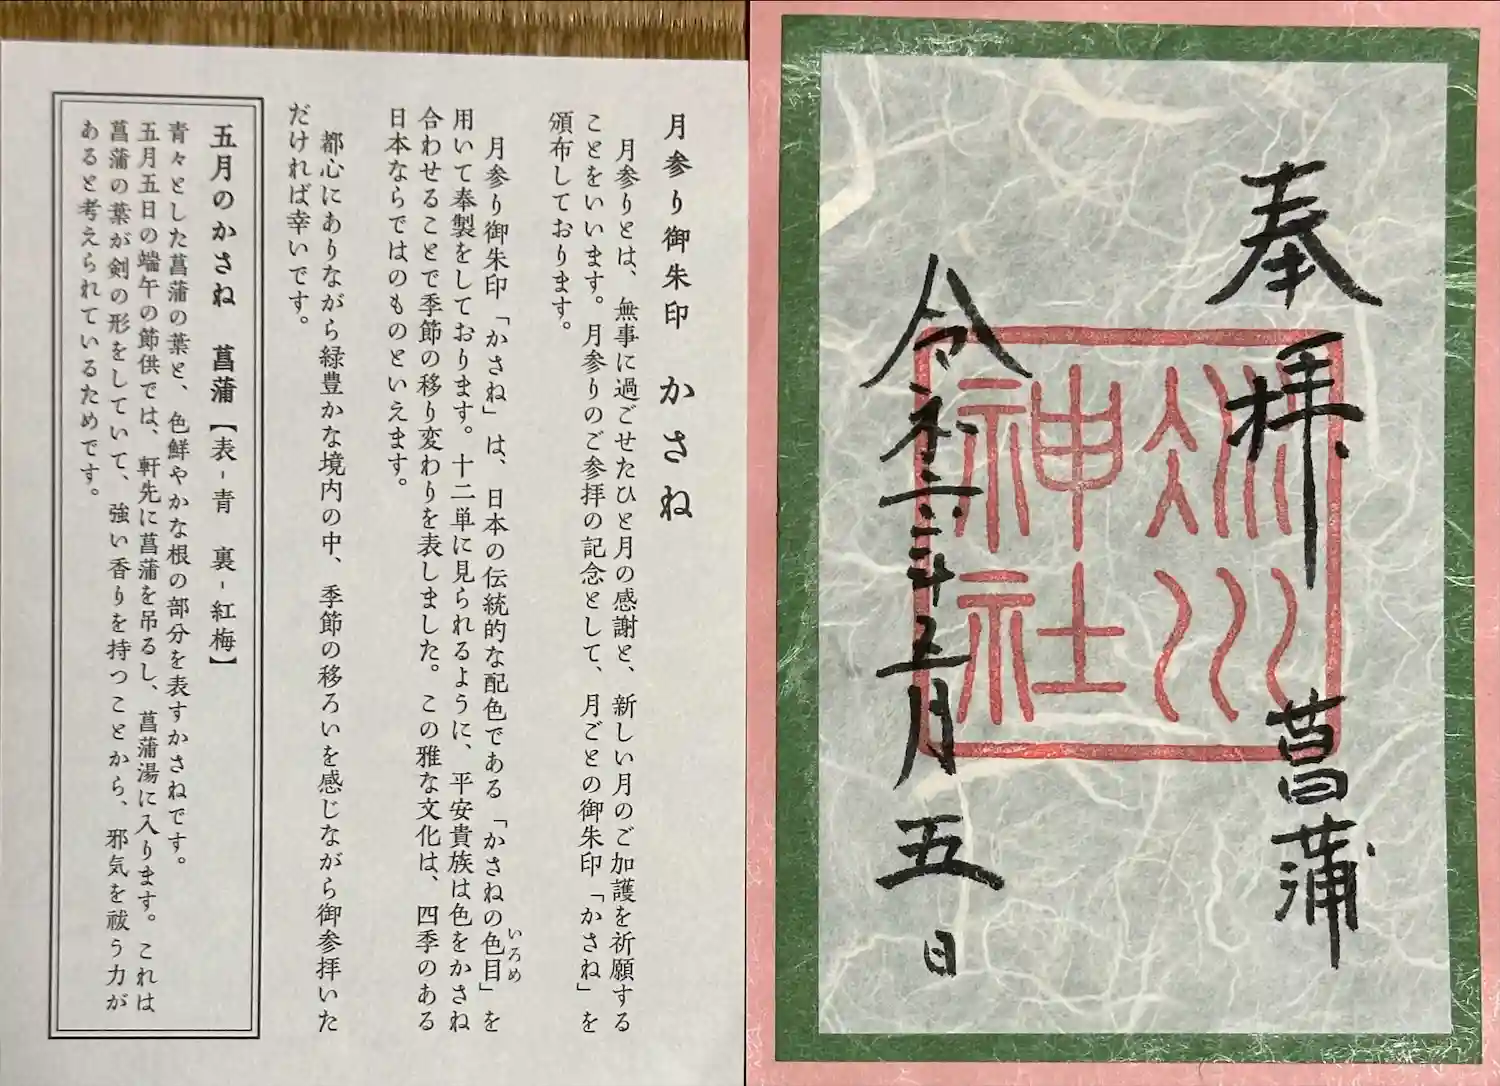 月参り御朱印　かさね
月参りとは、無事に過ごせたひと月の感謝と、新しい月のご加護を祈願する
ことをいいます。月参りのご参拝の記念として、月ごとの御朱印「かさね」を
頒布しております。
月参り御朱印「かさね」は、日本の伝統的な配色である「かさねの色目」を
いろめ
用いて奉製をしております。十二単に見られるように、平安貴族は色をかさね
合わせることで季節の移り変わりを表しました。この雅な文化は、四季のある
日本ならではのものといえます。
都心にありながら緑豊かな境内の中、季節の移ろいを感じながら御参拝いた
だければ幸いです。
五月のかさね　菖蒲【表-青　裏-紅梅】
青々とした菖蒲の葉と、色鮮やかな根の部分を表すかさねです。
五月五日の端午の節供では、軒先に菖蒲を吊るし、菖蒲湯に入ります。これは
菖蒲の葉が剣の形をしていて、強い香りを持つことから、邪気を祓う力が
あると考えられているためです。
奉拝　菖蒲
冰川
神社
令和六年五月五日